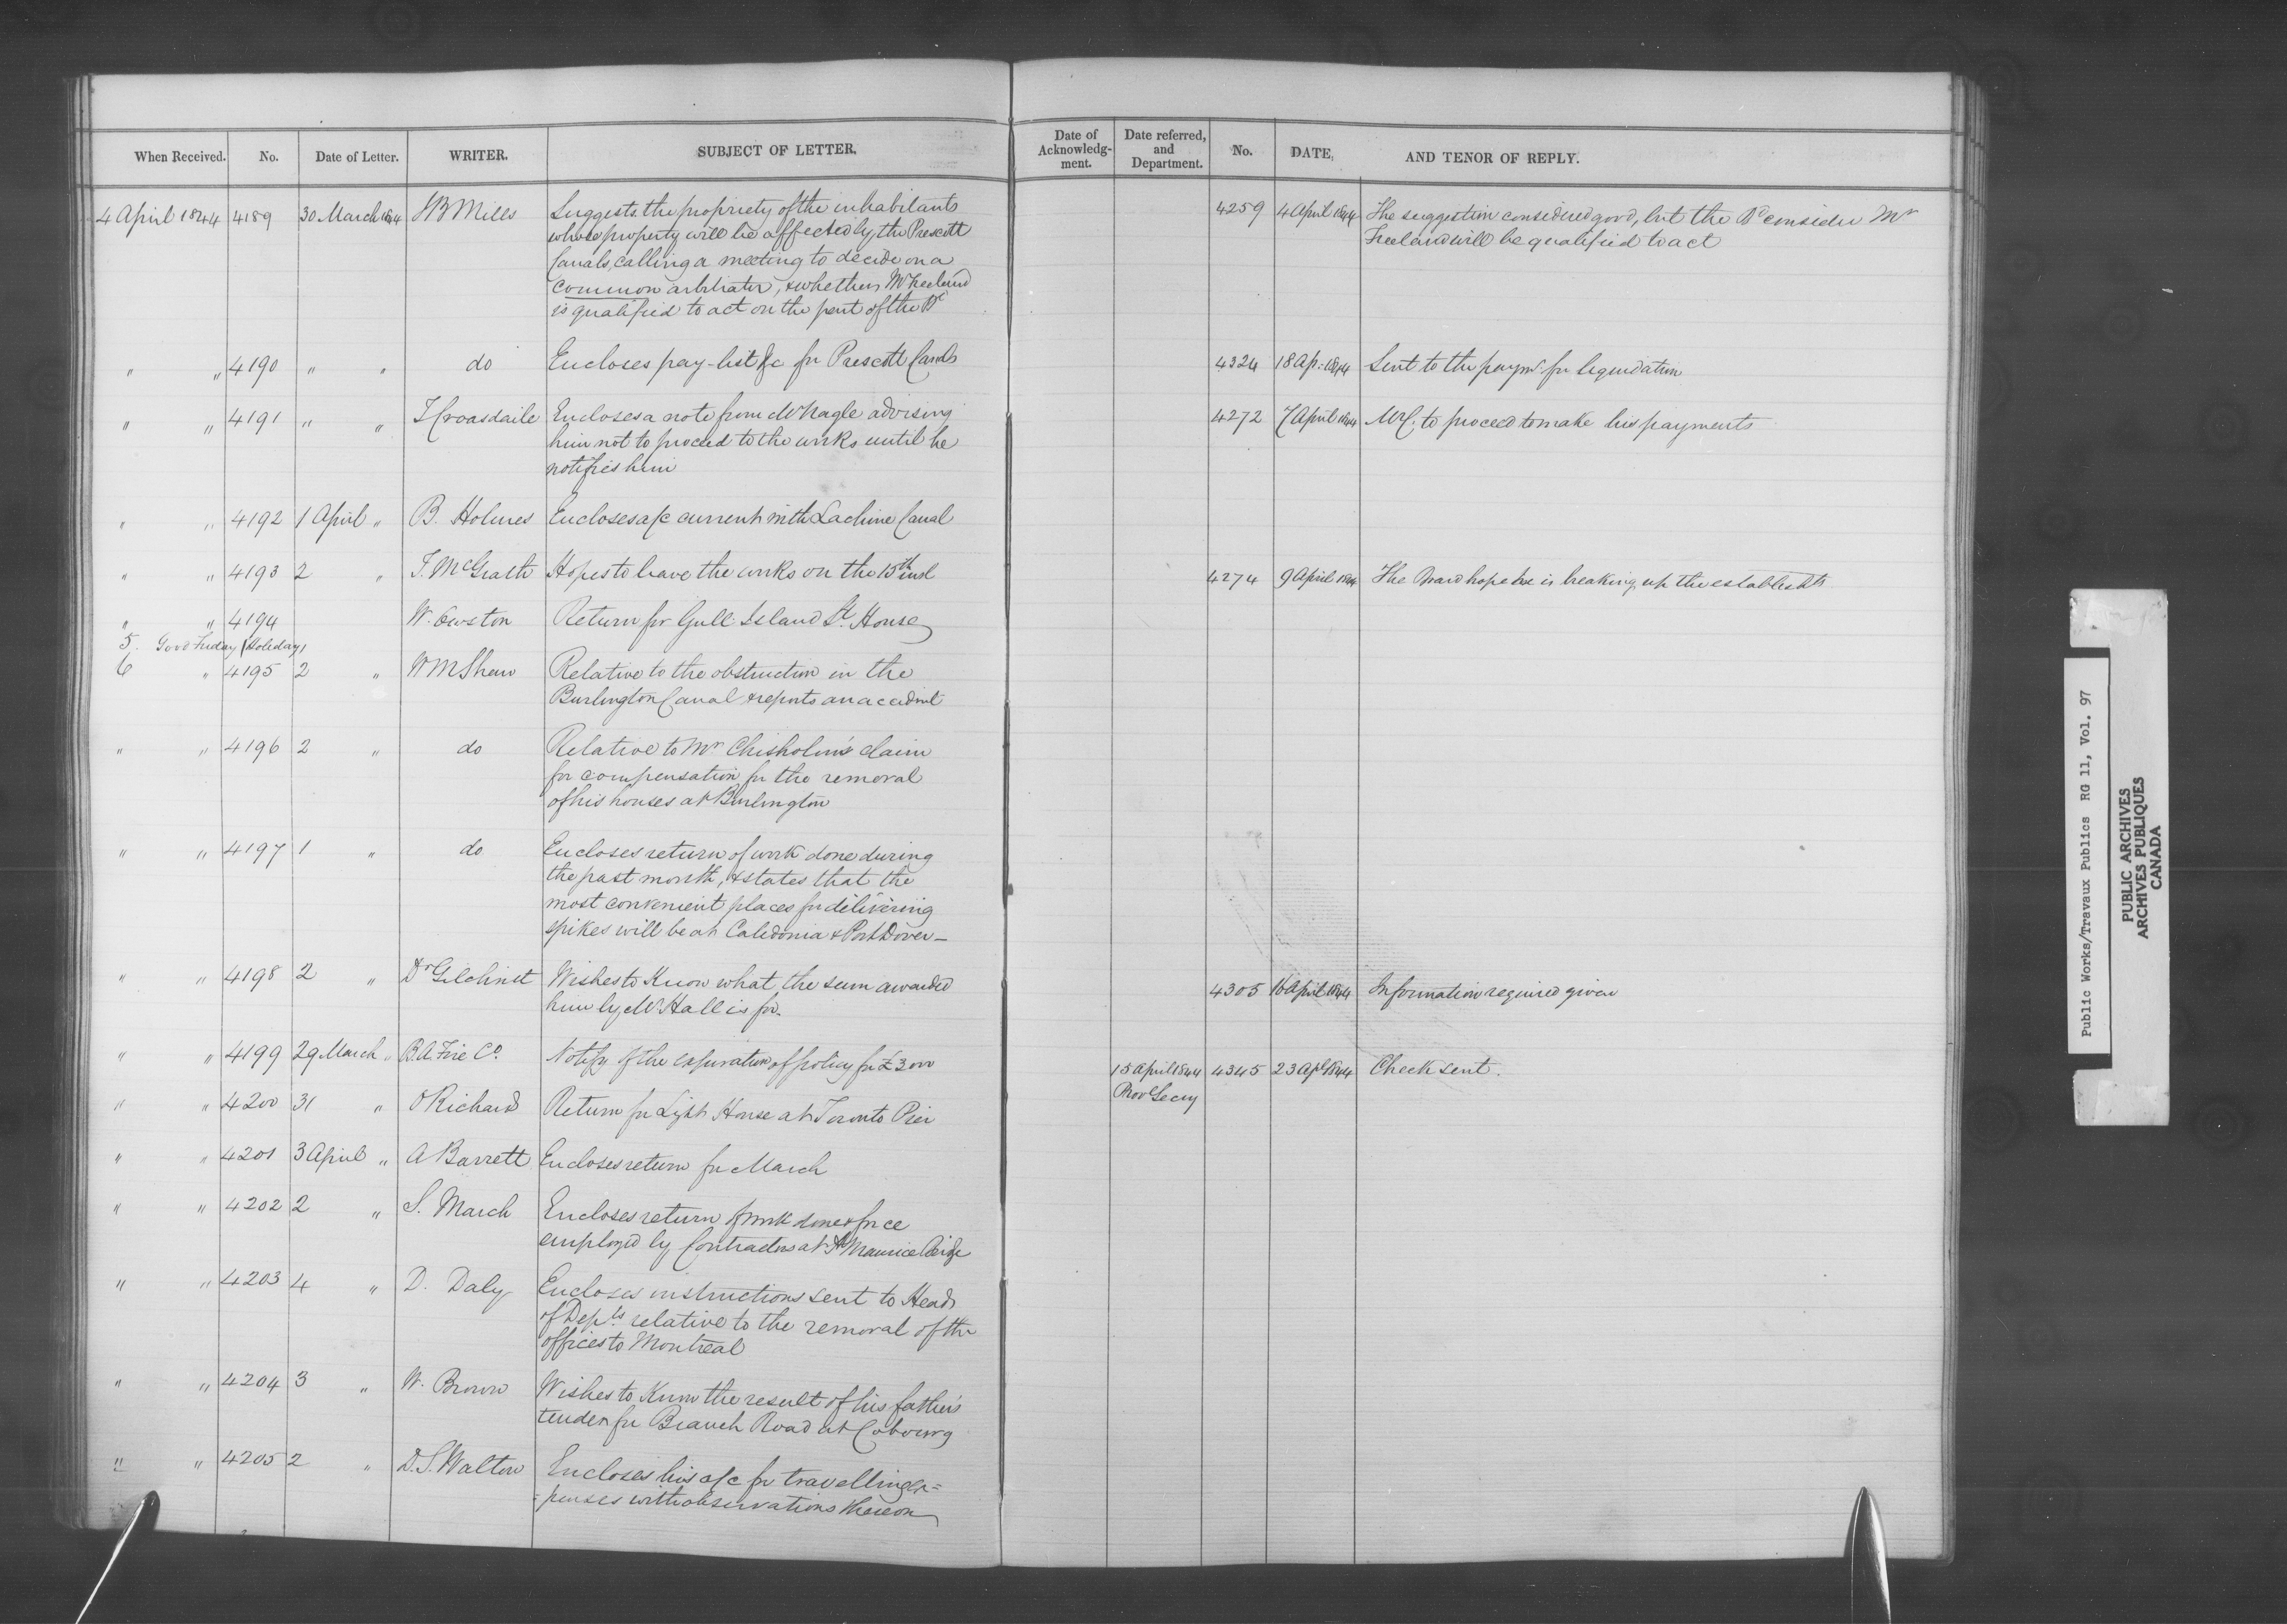 When Received. No. Date of Letter. WRITER. SUBJECT OF LETTER. Date of Acknowledg-ment. Date referred, and Department. No. DATE, AND TENOR OF REPLY.
4 April 1844 4189 30 March 1844 Mills Suggests the propriety of the inhabitants
whose property will be affected by the Prescott
Canals, calling a meeting to decide on a
common arbitrator, & whether Mr Freeland
is qualified to act on the part of the Bd
4259 4 April 1844 The suggestion considered good, but the Bd consider Mr
Freeland will be qualified to act
" " 4190 " " do Encloses pay-list &c for Prescott Canals
4324 18 Ap: 1844 Sent to the paymr for liquidation
" " 4191 " " T Croasdaile Encloses a note from Mr Nagle advising
him not to proceed to the works until he
notifies him
4272 7 April 1844 Mr C. to proceed to make his payments
" " 4192 1 April " B. Holmes Encloses a/c current with Lachine Canal
" " 4193 2 " T. McGrath Hopes to leave the works on the 15th inst
4274 9 April 1844 The Board hope he is breaking up the establishts
" " 4194 W. Owston Return for Gull Island Lt House
5. Good Friday (Holiday)
6 " 4195 2 " W M Shaw Relative to the obstruction in the
Burlington Canal & reports an accident
" " 4196 2 " do Relative to Mr Chisholm's claim
for compensation for the removal
of his houses at Burlington
" " 4197 1 " do Encloses return of work done during
the past month, & states that the
most convenient places for delivering
spikes will be at Caledonia & Port Dover –
" " 4198 2 " Dr Gilchrist Wishes to Know what the sum awarded
him by Mr Hall is for.
4305 16 April 1844 Information required given
" " 4199 29 March " B.A. Fire Co. Notify of the expiration of policy for £3000
15 April 1844 4345 23 Apl 1844 Check sent.
Prov Secy
" " 4200 31 " O Richard Return for Light House at Toronto Pier
" " 4201 3 April " A Barrett Encloses return for March
" " 4202 2 " S. March Encloses return of work done & force
employed by Contractors at St Maurice Bridge
" " 4203 4 " D. Daly Encloses instructions sent to Heads
of Depts. relative to the removal of the
offices to Montreal
" " 4204 3 " W. Brown Wishes to Know the result of his father's
tender for Branch Road at Cobourg
" " 4205 2 " D.S. Walton Encloses his a/c for travelling ex=
=penses with observations thereon
Public Works/Travaux Publics RG 11, Vol. 97
PUBLIC ARCHIVES
ARCHIVES PUBLIQUES
CANADA